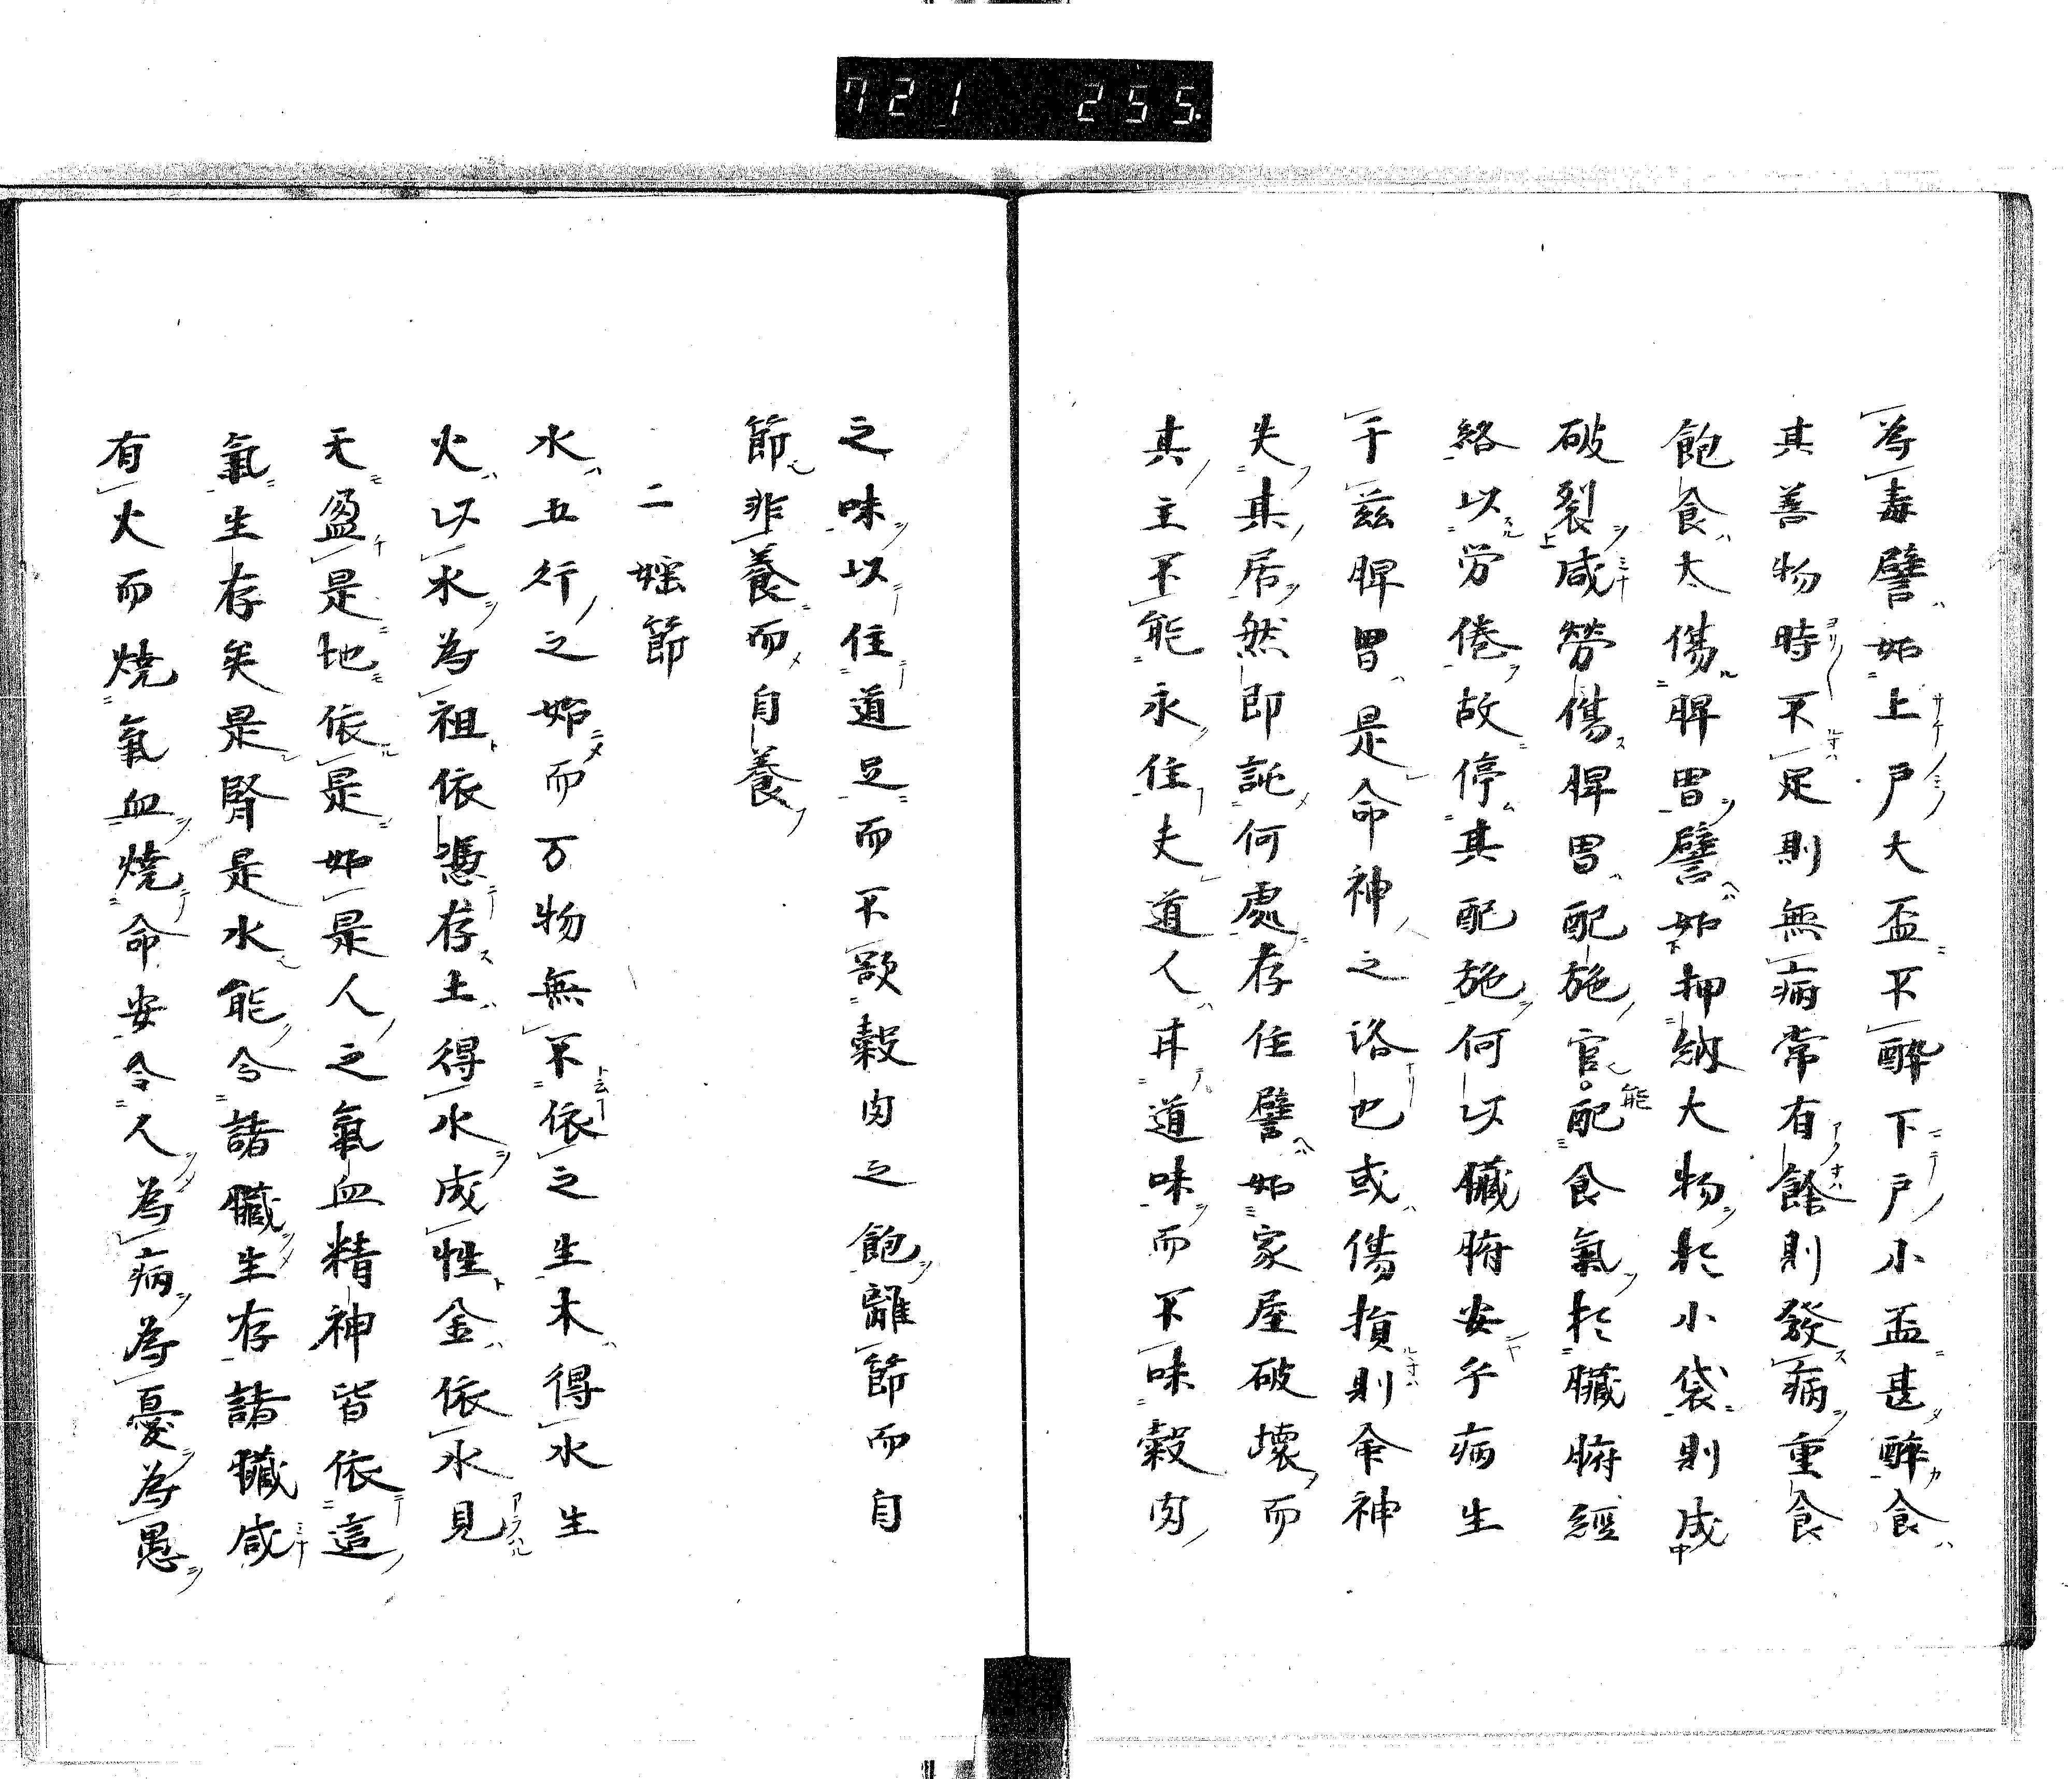 721 255.
為毒譬如上戸大盃不醉下戸小盃甚醉食
其善物時不足則無病常有餘則發病重食
飽食大傷脾胃譬如押納大物於小袋則成
破裂咸勞傷脾胃配施官能配食氣於臓腑經
絡以労倦故停其配施何以臓腑安乎病生
于茲脾胃是命神之㳓也或傷損則命神
失其居然即詫何處存住譬如家屋破壊而
其主不能永住夫道人甘道味而不味穀肉
之味以住道足而不欲穀肉之飽離節而自
節非養而自養
二婬節
水五行之始而万物無不依之生木得水生
火以水為祖依憑存土得水成性金依水見
天盈是地依是如是人之氣血精神皆依這
氣生存矣是腎是水能令諸臓生存諸臓咸
有火而燒氣血燒命安令人為病為憂為愚